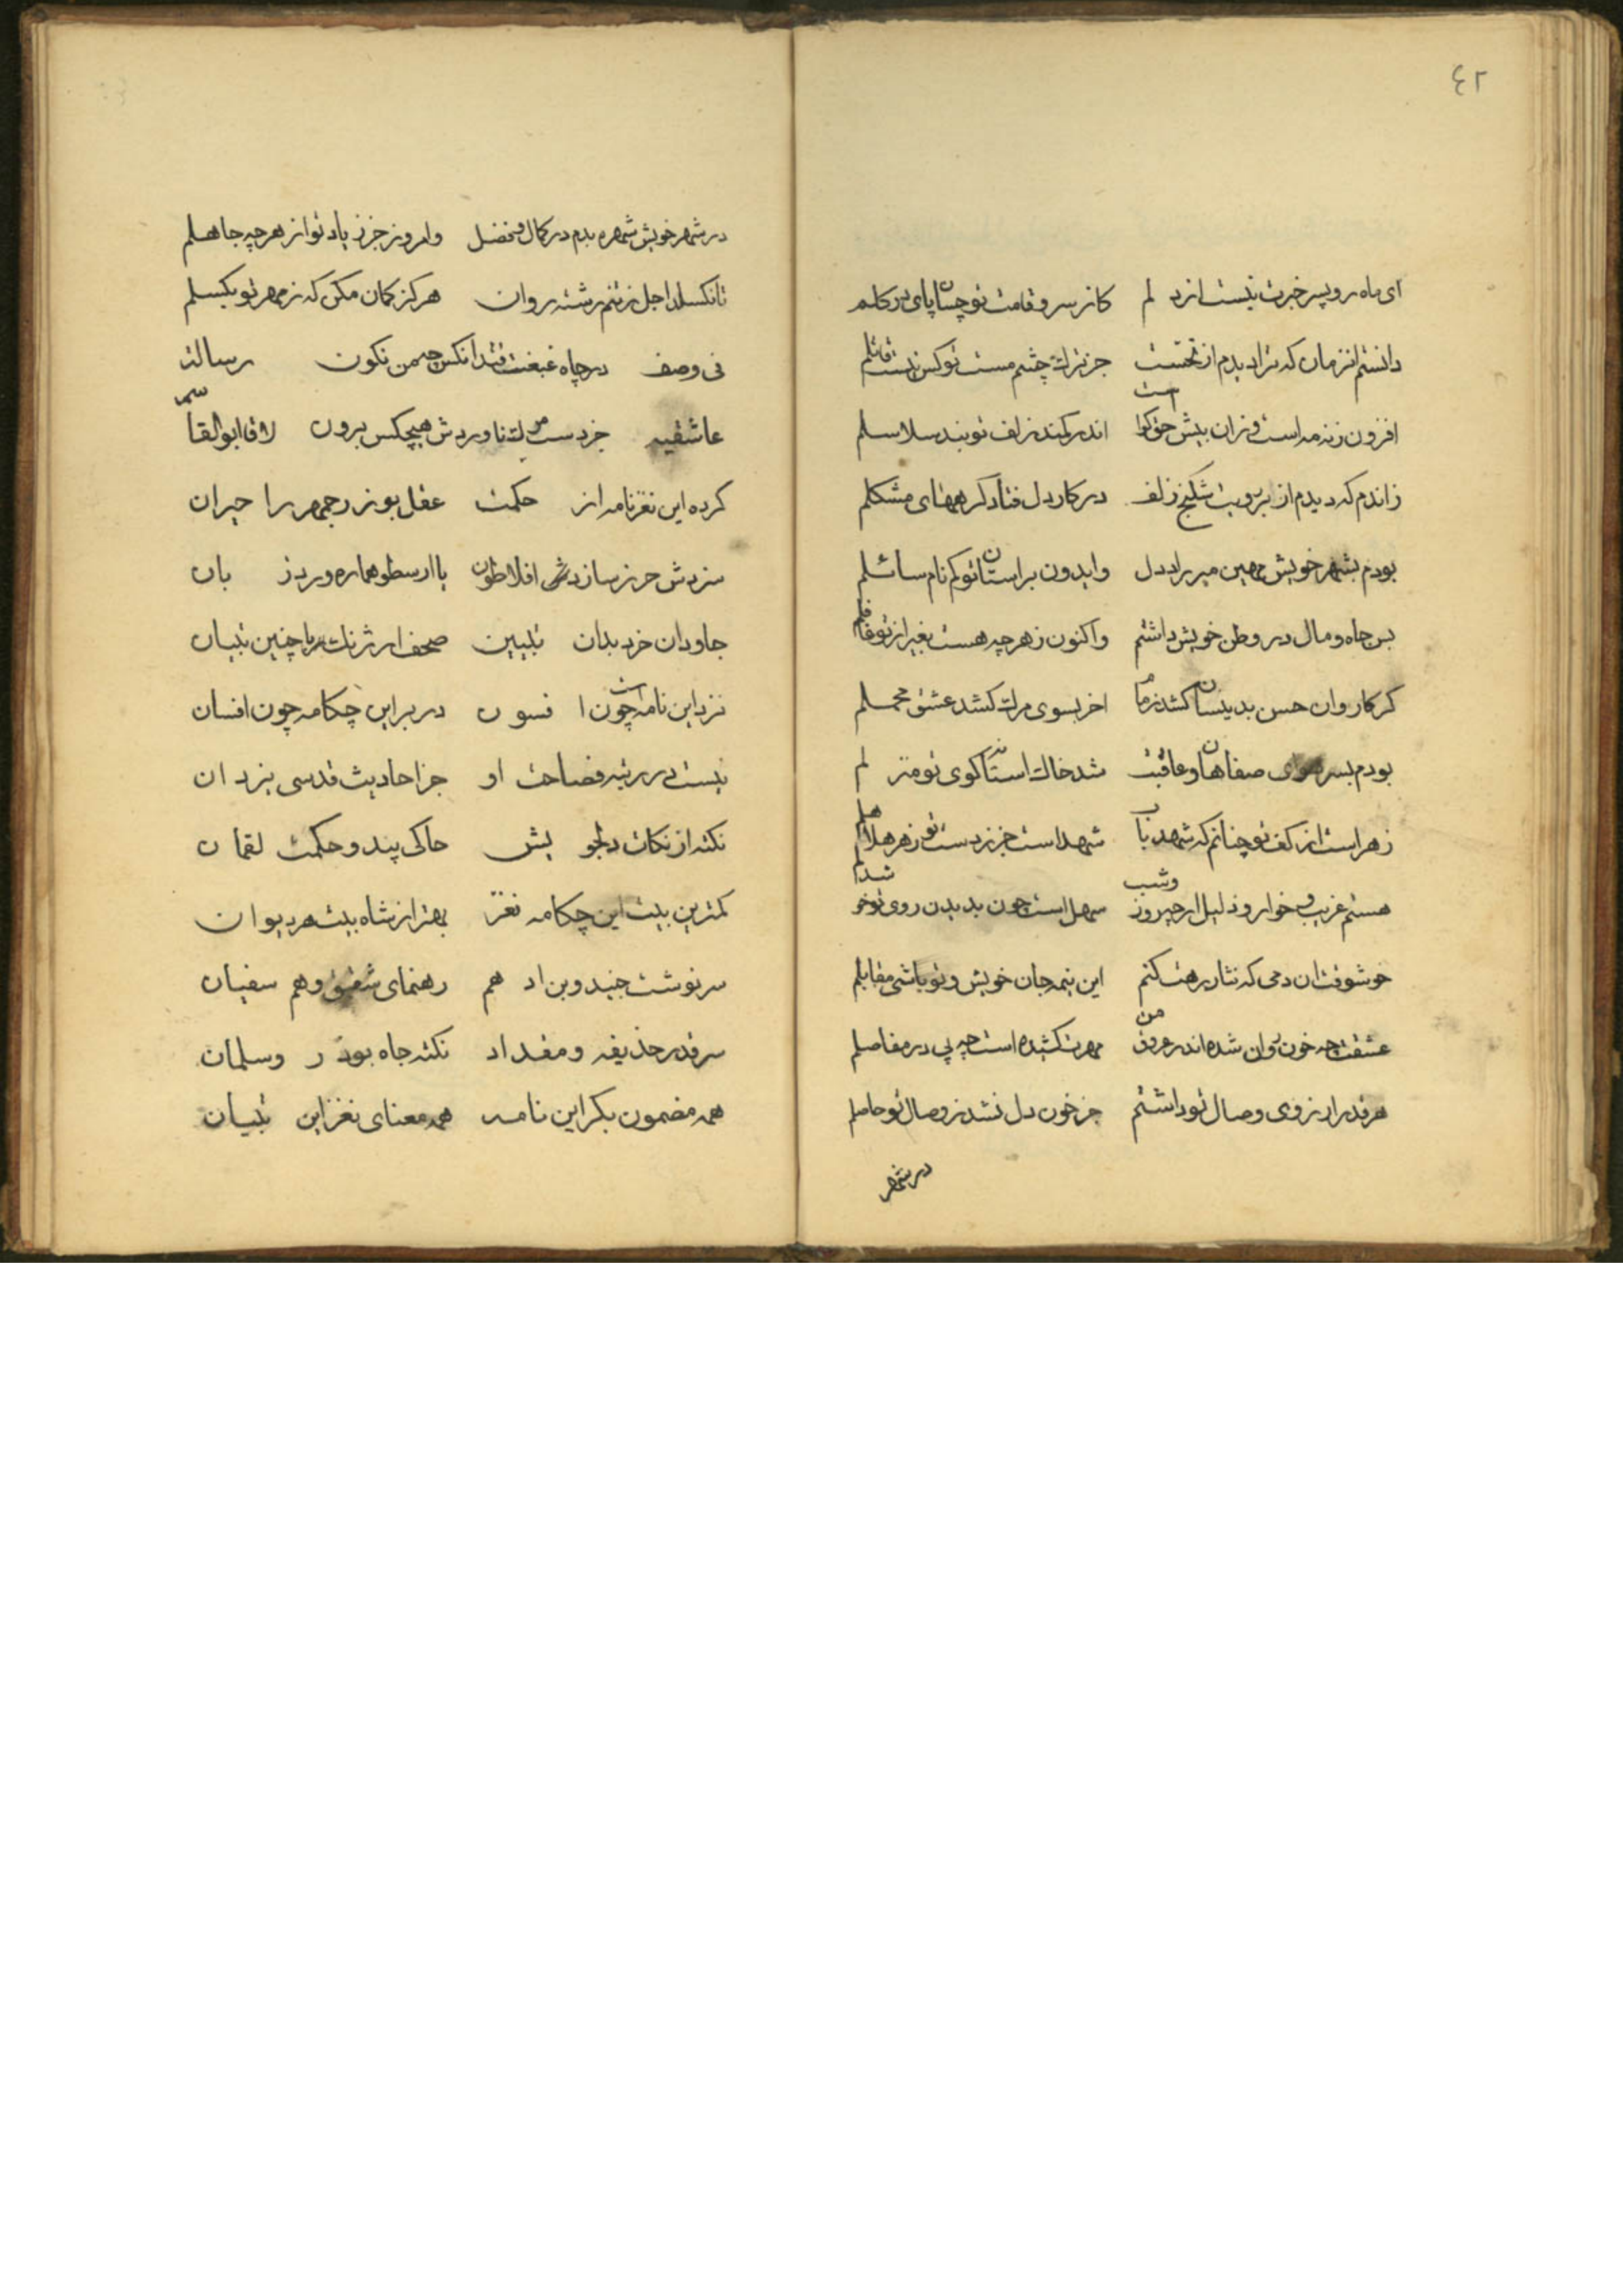 ٤٢
ای ماه رو پسر خبرت نیست از دلم کاز سرو قامت تو چسان پای در کلم
دانستم انزمان که ترا دیدم از نخست جز ترک چشم مست تو کس نیست قاتلم
افزون ز نه مه است و زان بیش حق کواست اندر کمند زلف تو بند سلاسلم
زاندم که دیدم از بر رویت شکنج زلف در کار دل فتاد کرههای مشکلم
بودم بشهر خویش مهین میر راد دل وایدون براستان تو کم نام سائلم
بس جاه و مال در وطن خویش داشتم واکنون ز هرچه هست بغیر از تو غافلم
کر کاروان حسن بدینسان کشد زمام اخر بسوی مرک کشد عشق محملم
بودم بسر هوای صفاهان و عاقبت شد خاک استان کوی تو منزلم
زهر است از کف تو چنانم که شهد ناب شهد است جز ز دست تو زهر هلاهلم
هستم غریب و خوار و ذلیل ارچه روز وشب سهل است چون بدیدن روی تو خوشدلم
خوشوقت ان دمی که نثار رهت کنم این نیمه جان خویش و تو باشی مقابلم
عشقت چه خون روان شده اندر عروق من مهرت کشیده است چه پی در مفاصلم
هر قدر ارزوی وصال تو داشتم جز خون دل نشد ز وصال تو حاصلم
در شهر
در شهر خویش شهره بدم در کمال و فضل وامروز جز ز یاد تو از هرچه جاهلم
تا نکسلد اجل ز تنم رشته روان هرکز کمان مکن که ز مهر تو بکسلم
فی وصف در چاه غبغبت فتد انکس چه من نکون رسالت
عاشقیه جز دست مرک ناوردش هیچکس برون لاقا ابوالقاسم
کرده این نغز نامه از حکمت عقل بوزرجمهر را حیران
سزدش حرز سازدش افلاطون یا ارسطو هماره ورد زبان
جاودان خرد بدان تبیین صحف ارژنک با چنین تبیان
نزد این نامه است چون افسون در بر این چکامه چون افسان
نیست در رتبه فصاحت او جز احادیث قدسی یزدان
نکته از نکات دلجویش حاکی پند و حکمت لقمان
کمترین بیت این چکامه نغز بهتر از شاه بیت هر دیوان
سرنوشت جنید و بن ادهم رهنمای شقیق و هم سفیان
سر قدر حذیفه و مقداد نکته جاه بوذر و سلمان
همه مضمون بکر این نامه همه معنای نغز این تبیان